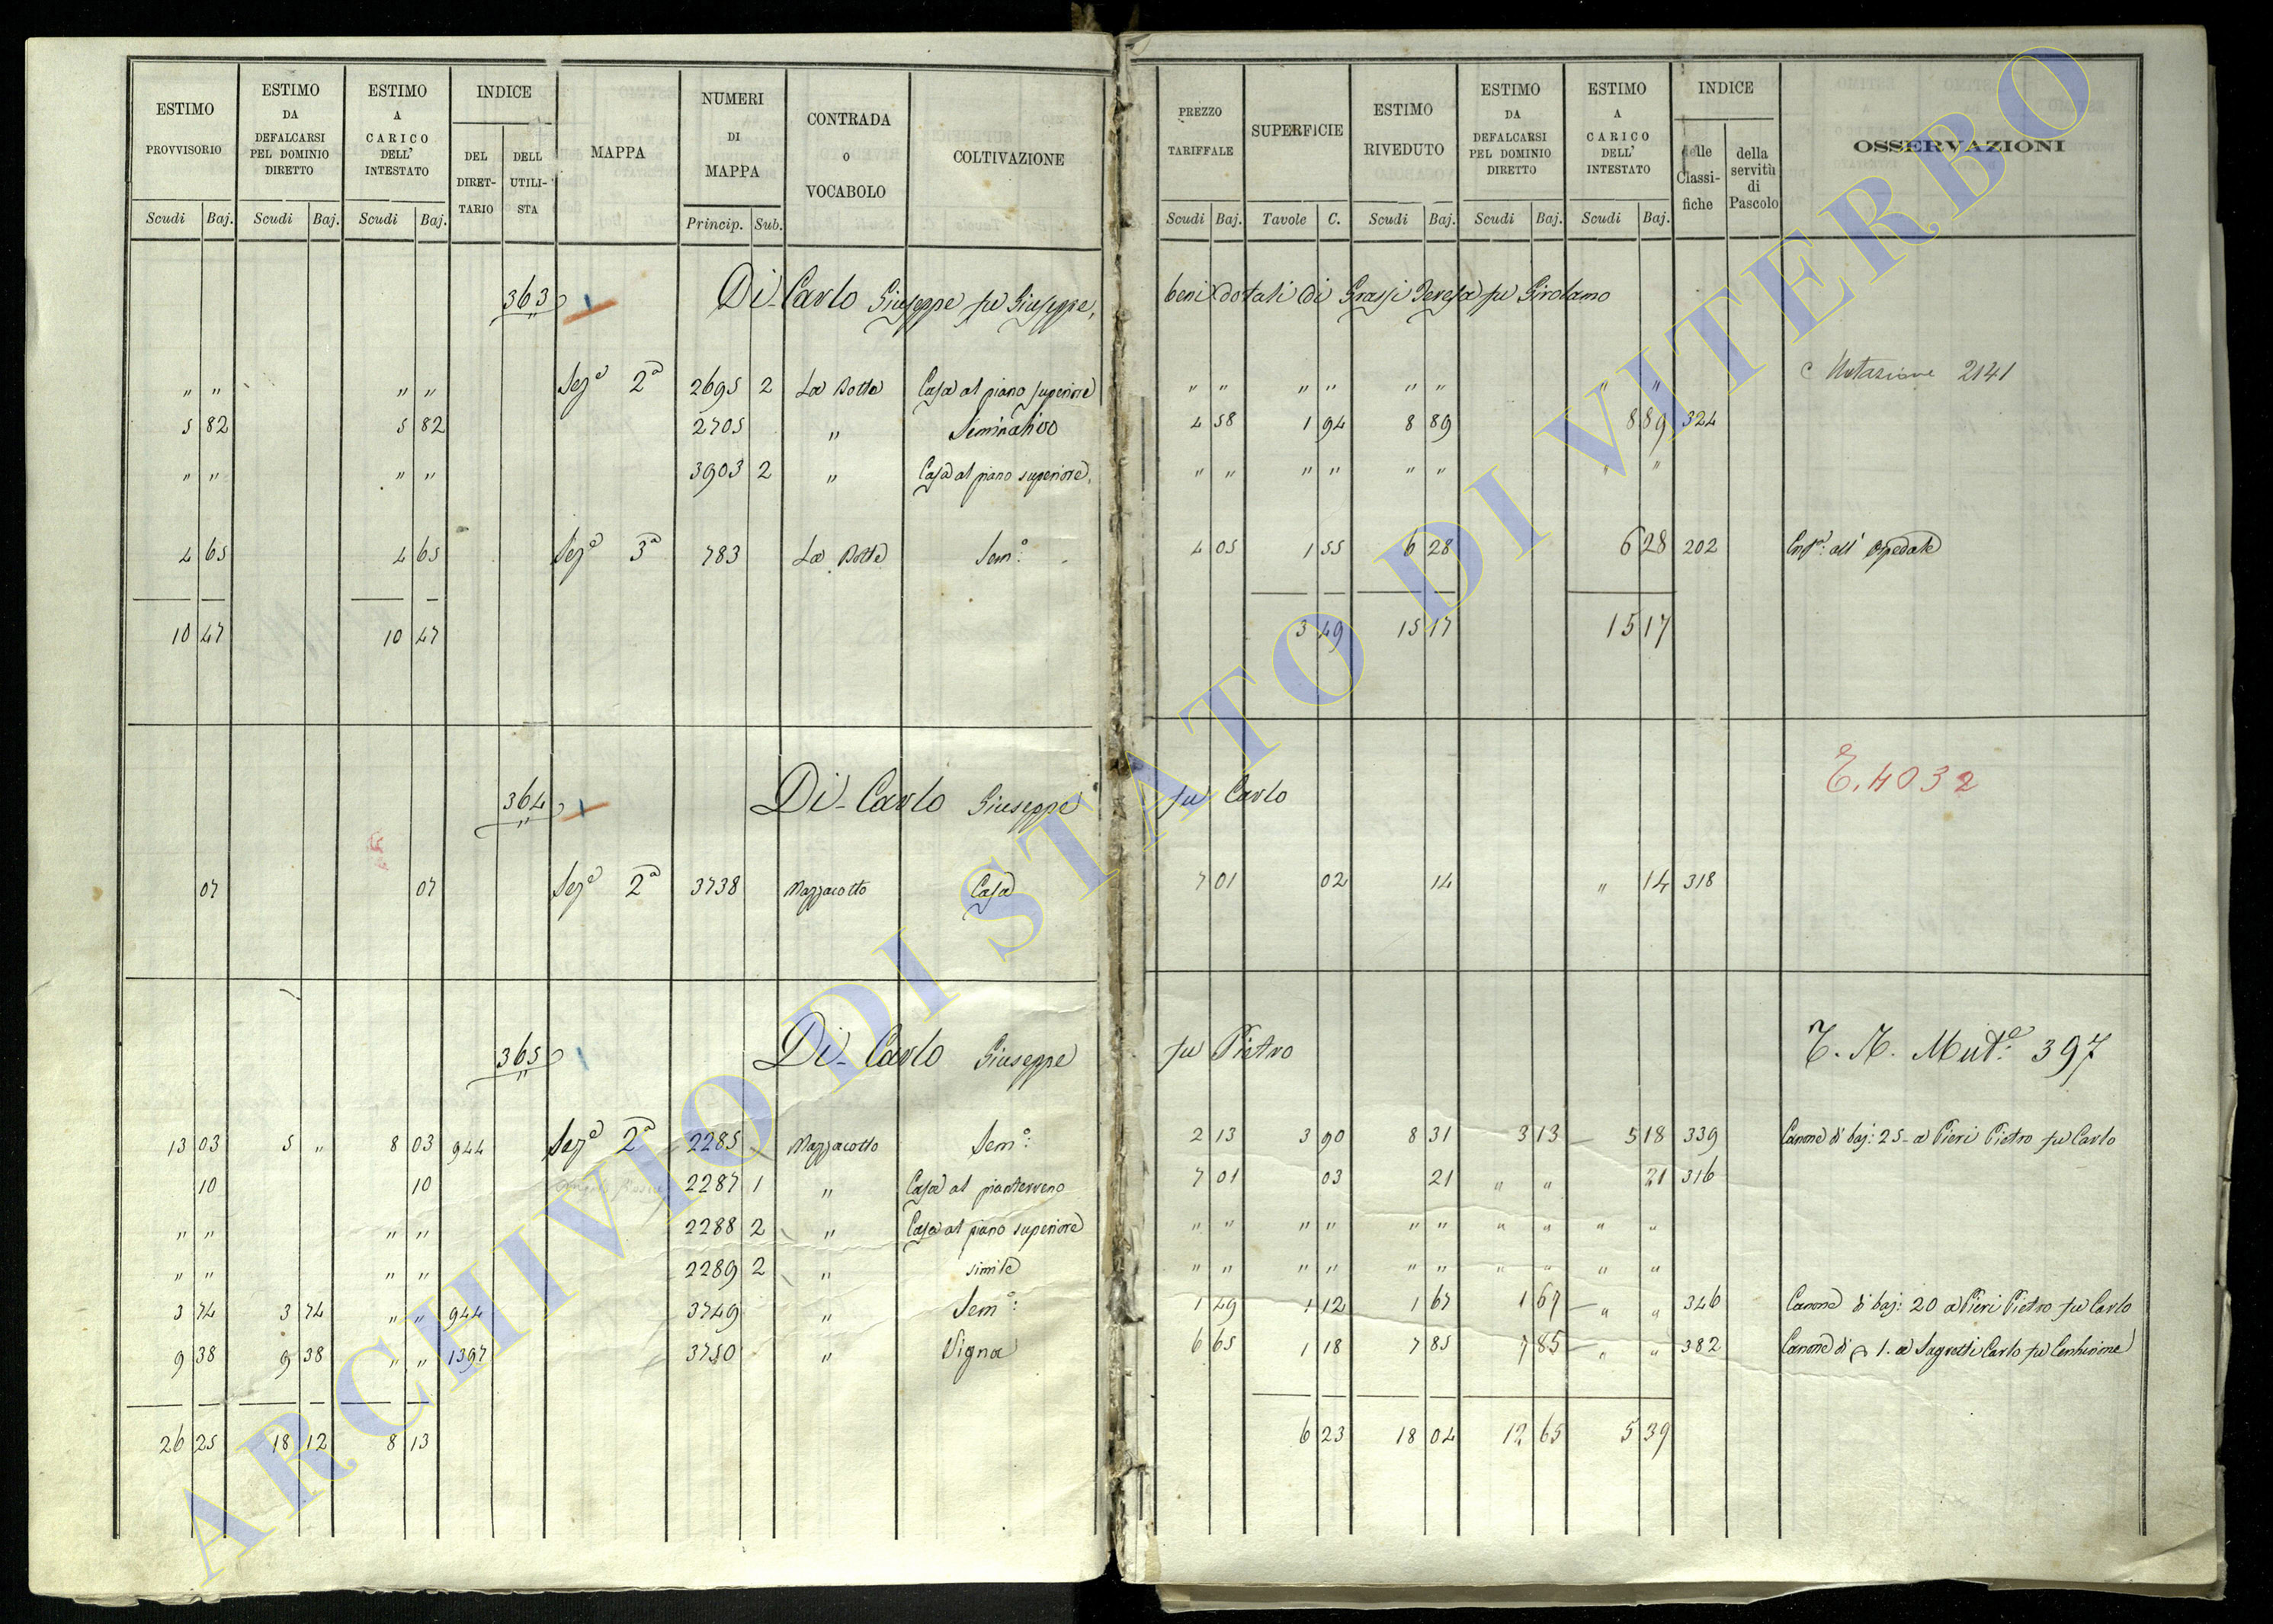 ESTIMO PROVVISORIO
ESTIMO DA DEFALCARSI PEL DOMINIO DIRETTO
ESTIMO A CARICO DELL' INTESTATO
INDICE
DEL DIRET-TARIO
DELL UTILI-STA
MAPPA
NUMERI DI MAPPA
CONTRADA O VOCABOLO
COLTIVAZIONE
Scudi Baj. Scudi Baj. Scudi Baj. Princip. Sub.
PREZZO TARIFFALE
SUPERFICIE
ESTIMO RIVEDUTO
ESTIMO DA DEFALCARSI PEL DOMINIO DIRETTO
ESTIMO A CARICO DELL' INTESTATO
INDICE
delle Classi-fiche
della servitù di Pascolo
OSSERVAZIONI
Scudi Baj. Tavole C. Scudi Baj. Scudi Baj. Scudi Baj.
363 Di-Carlo Giuseppe fu Giuseppe, beni dotali di Grassi Teresa fu Girolamo
" " " " Sezᵉ 2ª 2695 2 La Botte Casa al piano superiore " " " " " " " " Mutazione 2141
5 82 5 82 2705 " Seminativo 4 58 1 94 8 89 8 89 324
" " " " 3903 2 " Casa al piano superiore " " " " " " " "
4 65 4 65 Sezᵉ 3ª 783 La Botte Sem.º 4 05 1 55 6 28 6 28 202 all' Ospedale
10 47 10 47 3 49 15 17 15 17
364 Di-Carlo Giuseppe fu Carlo
E. 4032
07 07 Sezᵉ 2ª 3738 Mazzacotto Casa 7 01 02 14 " 14 318
365 Di-Carlo Giuseppe fu Pietro
Mutᵉ: 397
13 03 5 " 8 03 944 Sezᵉ 2ª 2285 Mazzacotto Sem.º 2 13 3 90 8 31 3 13 5 18 339 Canone di baj: 25 a Pieri Pietro fu Carlo
10 10 2287 1 " Casa al pianterreno 7 01 03 21 " " 21 316
" " " " 2288 2 " Casa al piano superiore " " " " " " " " " "
" " " " 2289 2 " simile " " " " " " " " " "
3 74 3 74 " " 944 3749 " Sem.º 1 49 1 12 1 67 1 67 " " 346 Canone di baj: 20 a Pieri Pietro fu Carlo
9 38 9 38 " " 1397 3750 " Vigna 6 65 1 18 7 85 7 85 " " 382 Canone di 1. a Sagretti Carlo fu
26 25 18 12 8 13 6 23 18 04 12 65 5 39
ARCHIVIO DI STATO DI VITERBO